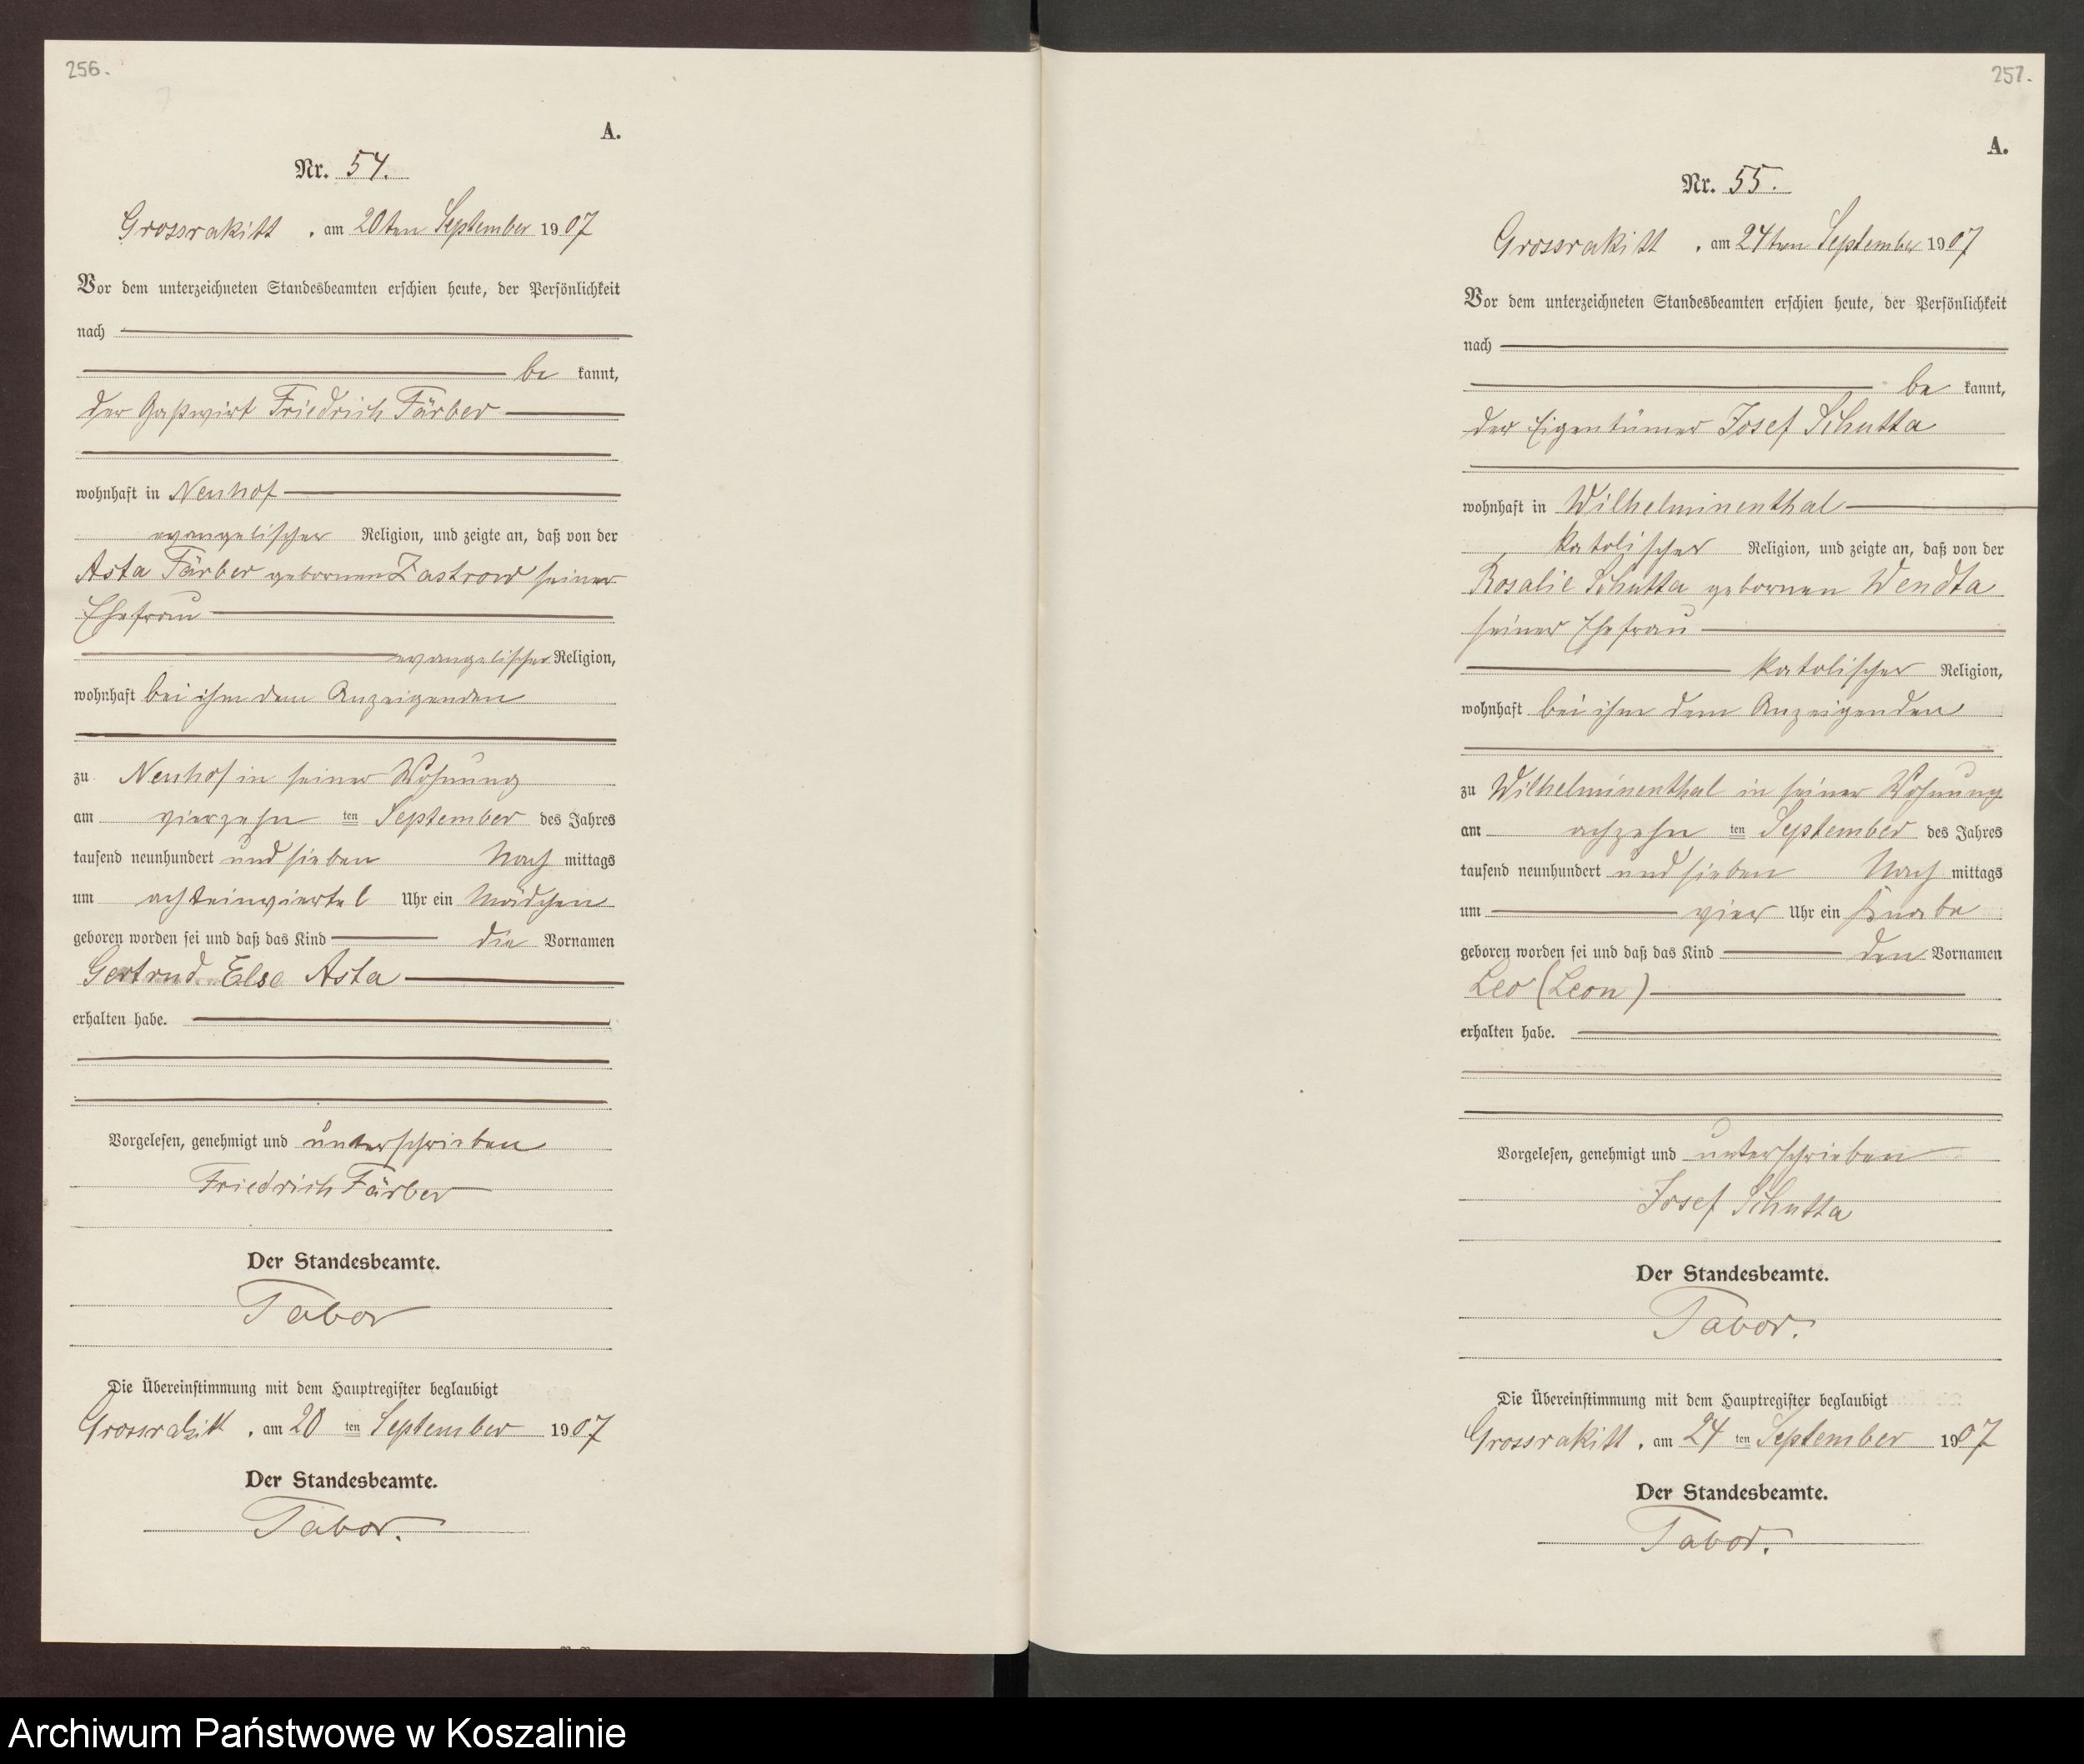 256.
A.
Nr. 54.
Grossrakitt, am 20ten September 1907
Vor dem unterzeichneten Standesbeamten erschien heute, der Persönlichkeit
nach
be kannt,
der Gastwirt Friedrich Färber
wohnhaft in Neuhof
evangelischer Religion, und zeigte an, daß von der
Asta Färber gebornen Zastrow seiner
Ehefrau
evangelischer Religion,
wohnhaft bei ihm dem Anzeigenden
zu Neuhof in seiner Wohnung
am vierzehn ten September des Jahres
tausend neunhundert und sieben Nach mittags
um achteinviertel Uhr ein Mädchen
geboren worden sei und daß das Kind die Vornamen
Gertrud Else Asta
erhalten habe.
Vorgelesen, genehmigt und unterschrieben
Friedrich Färber
Der Standesbeamte.
Tabor
Die Übereinstimmung mit dem Hauptregister beglaubigt
Grossrakitt, am 20 ten September 1907
Der Standesbeamte.
Tabor.
257.
A.
Nr. 55.
Grossrakitt, am 24ten September 1907
Vor dem unterzeichneten Standesbeamten erschien heute, der Persönlichkeit
nach
be kannt,
der Eigentümer Josef Schutta
wohnhaft in Wilhelminenthal
katolischer Religion, und zeigte an, daß von der
Rosalie Schutta gebornen Wendta
seiner Ehefrau
katolischer Religion,
wohnhaft bei ihm dem Anzeigenden
zu Wilhelminenthal in seiner Wohnung
am achzehn ten September des Jahres
tausend neunhundert und sieben Nach mittags
um vier Uhr ein Knabe
geboren worden sei und daß das Kind den Vornamen
Leo (Leon)
erhalten habe.
Vorgelesen, genehmigt und unterschrieben
Josef Schutta
Der Standesbeamte.
Tabor.
Die Übereinstimmung mit dem Hauptregister beglaubigt
Grossrakitt, am 24 ten September 1907
Der Standesbeamte.
Tabor.
Archiwum Państwowe w Koszalinie